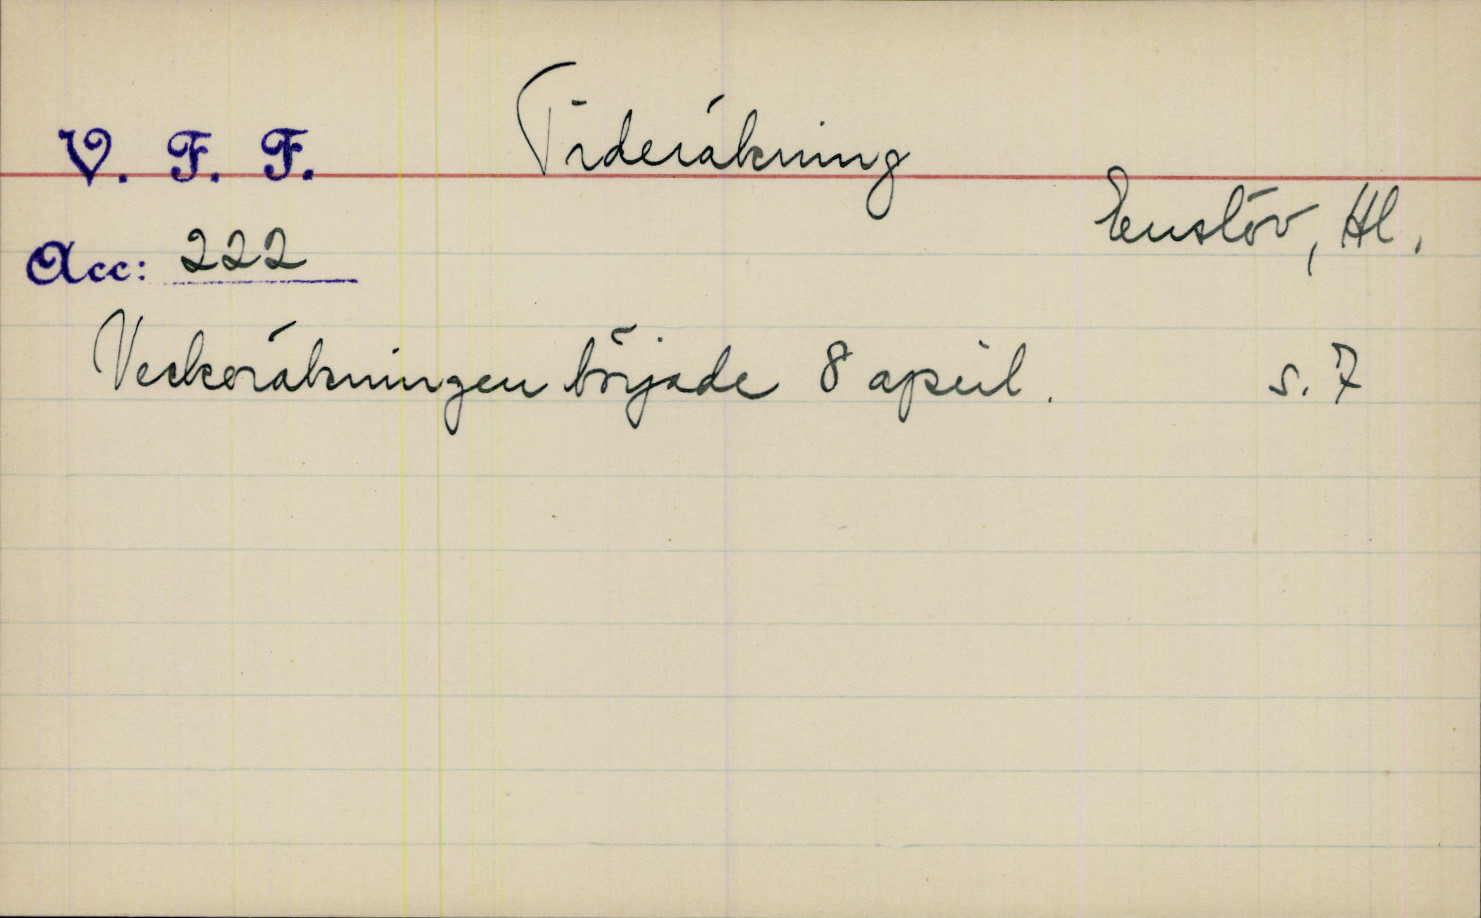 V. F. F. Tideräkning
Enslöv, Hl.
Acc: 222
Veckoräkningen började 8 april. s. 7